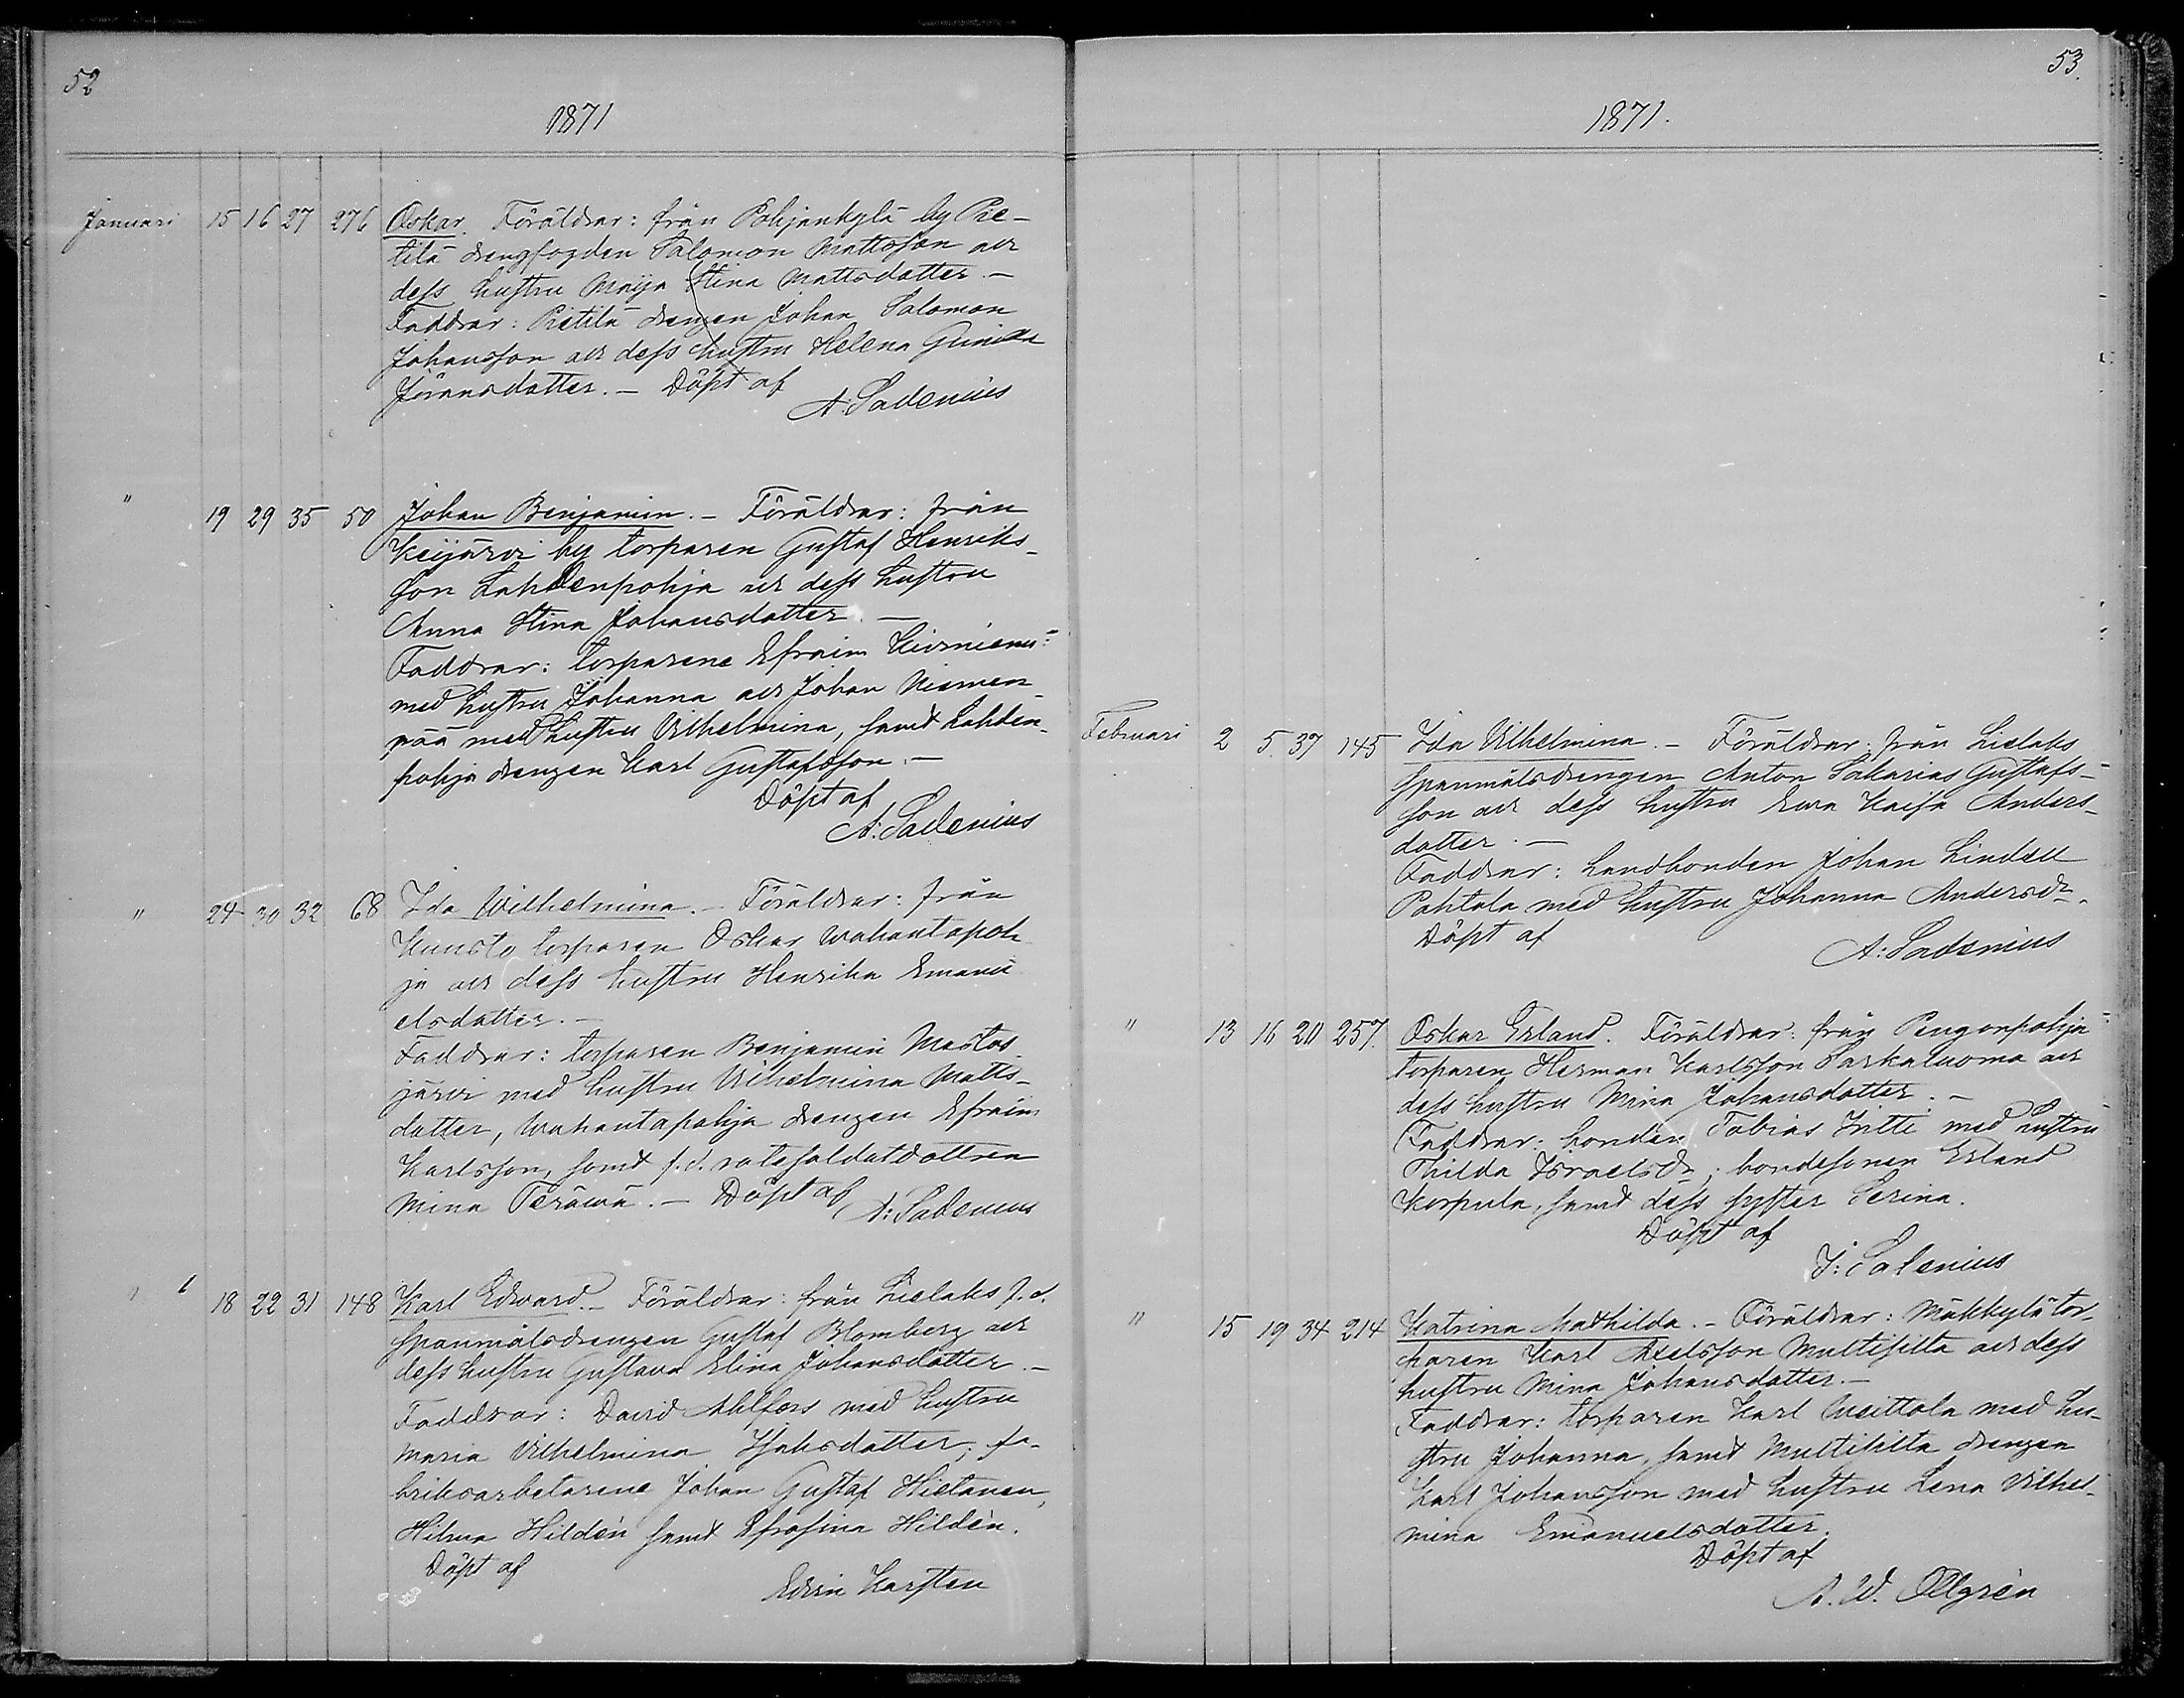 52
1871
Januari 15 16 27 276 Oskar. Föräldrar: från Pohjankylä by Pie-
tilä drengfogden Salomon Mattsson och
dess hustru Maija Stina Mattsdotter. -
Faddrar: Pietilä drengen Johan Salomon
Johansson och dess hustru Helena
Jöransdotter. - Döpt af
A: Sadenius
" 19 29 35 50 Johan Benjamin. - Föräldrar: från
Keijärvi by torparen Gustaf Henriks-
son Lahdenpohja och dess hustru
Anna Stina Johansdotter. -
Faddrar: torparene Efraim
med hustru Johanna och Johan Niemen-
pää med hustru Vilhelmina, samt Lahden-
pohja drengen Karl Gustafsson. -
Döpt af
A: Sadenius
" 24 30 32 68 Ida Wilhelmina. - Föräldrar: från
Kunsto torparen Oskar Wahantapoh
ja och dess hustru Henrika Emanu
elsdotter. -
Faddrar: torparen Benjamin Mastos
järvi med hustru Vilhelmina Matts-
dotter, Wahantapohja drengen Efraim
Karlsson, samt f.d. rotesoldatdottren
Mina Teräwä. - Döpt af
A: Sadenius
" 18 22 31 148 Karl Edvard. - Föräldrar: från Lielaks f.d.
spanmålsdrengen Gustaf Blomberg och
dess hustru Gustava Elina Johansdotter. -
Faddrar: David Ahlfors med hustru
Maria Vilhelmina Isaksdotter; fa-
briksarbetarene Johan Gustaf Hietanen,
Hilma Hildén samt Efrosina Hildén.
Döpt af
Edvin Karsten
53.
1871.
Februari 2 5 37 145 Ida Vilhelmina. - Föräldrar: från Lielaks
spanmålsdrengen Anton Sakarias Gustafs-
son och dess hustru Eva Kaisa Anders-
dotter. -
Faddrar: Landbonden Johan Lindell
Pahtala med hustru Johanna Andersdr.
Döpt af
A: Sadenius
" 13 16 20 257. Oskar Erland. Föräldrar: från Pengonpohja
torparen Herman Karlsson Sarkaluoma och
dess hustru Mina Johansdotter. -
Faddrar: bonden Tobias Intti med hustru
Thilda Israelsdr; bondesonen Erland
Korpula, samt dess syster Serina.
Döpt af
J: Salenius
" 15 19 34 214 Katrina Mathilda. - Föräldrar: Mäkkylä tor-
paren Karl Axelsson Multisilta och dess
hustru Mina Johansdotter. -
Faddrar: torparen Karl Uusittalo med hu-
stru Johanna, samt Multisilta drengen
Karl Johansson med hustru Lena Vilhel-
mina Emanuelsdotter.
Döpt af
A. W. Ollgrén